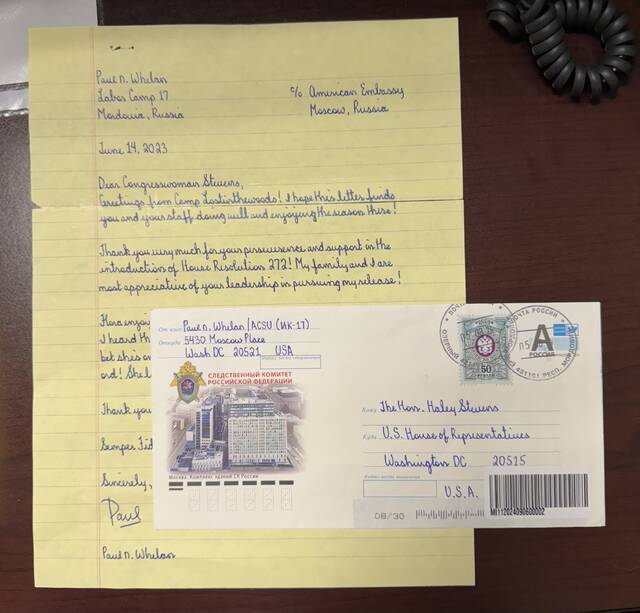 Paul N. Whelan
Labor Camp 17
Mordovia, Russia
c/o American Embassy
Moscow, Russia
June 14, 2023
Dear Congresswoman Stevens,
Greetings from Camp Lostinthewoods! I hope this letter finds
you and your staff doing well and enjoying the season there!
Thank you very much for your perseverence and support in the
introduction of House Resolution 272! My family and I are
most appreciative of your leadership in pursuing my release!
I heard th
bet she's on
ord! She l
Thank you
Semper Fid
Sincerely,
Paul
Paul N. Whelan
От кого Paul N. Whelan/ACSU (ИК-17)
Откуда 5430 Moscow Place
Wash DC 20521 USA
СЛЕДСТВЕННЫЙ КОМИТЕТ
РОССИЙСКОЙ ФЕДЕРАЦИИ
Москва. Комплекс зданий СК России
ПОЧТА РОССИИ
50
А
РОССИЯ
431101 РЕСП. МОРДОВИЯ
Кому The Hon. Haley Stevens
Куда U.S. House of Representatives
Washington DC 20515
U.S.A.
08/30
MI112024090600002